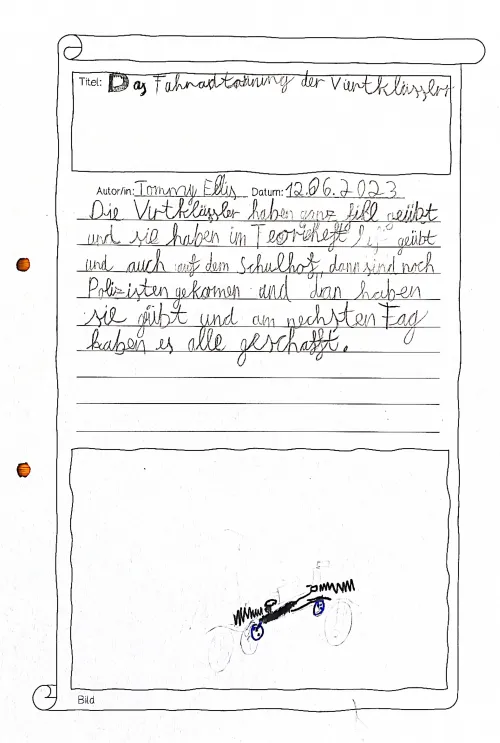 Titel: Das Fahrradtraining der Viertklässler
Autor/in: Tommy Ellis Datum: 12.06.2023
Die Virtklässler haben ganz fill geübt
und sie haben im Teorieheft geübt
und auch auf dem Schulhof, dann sind noch
Polizisten gekomen und dan haben
sie gübt und am nechsten Tag
haben es alle geschafft.
Bild